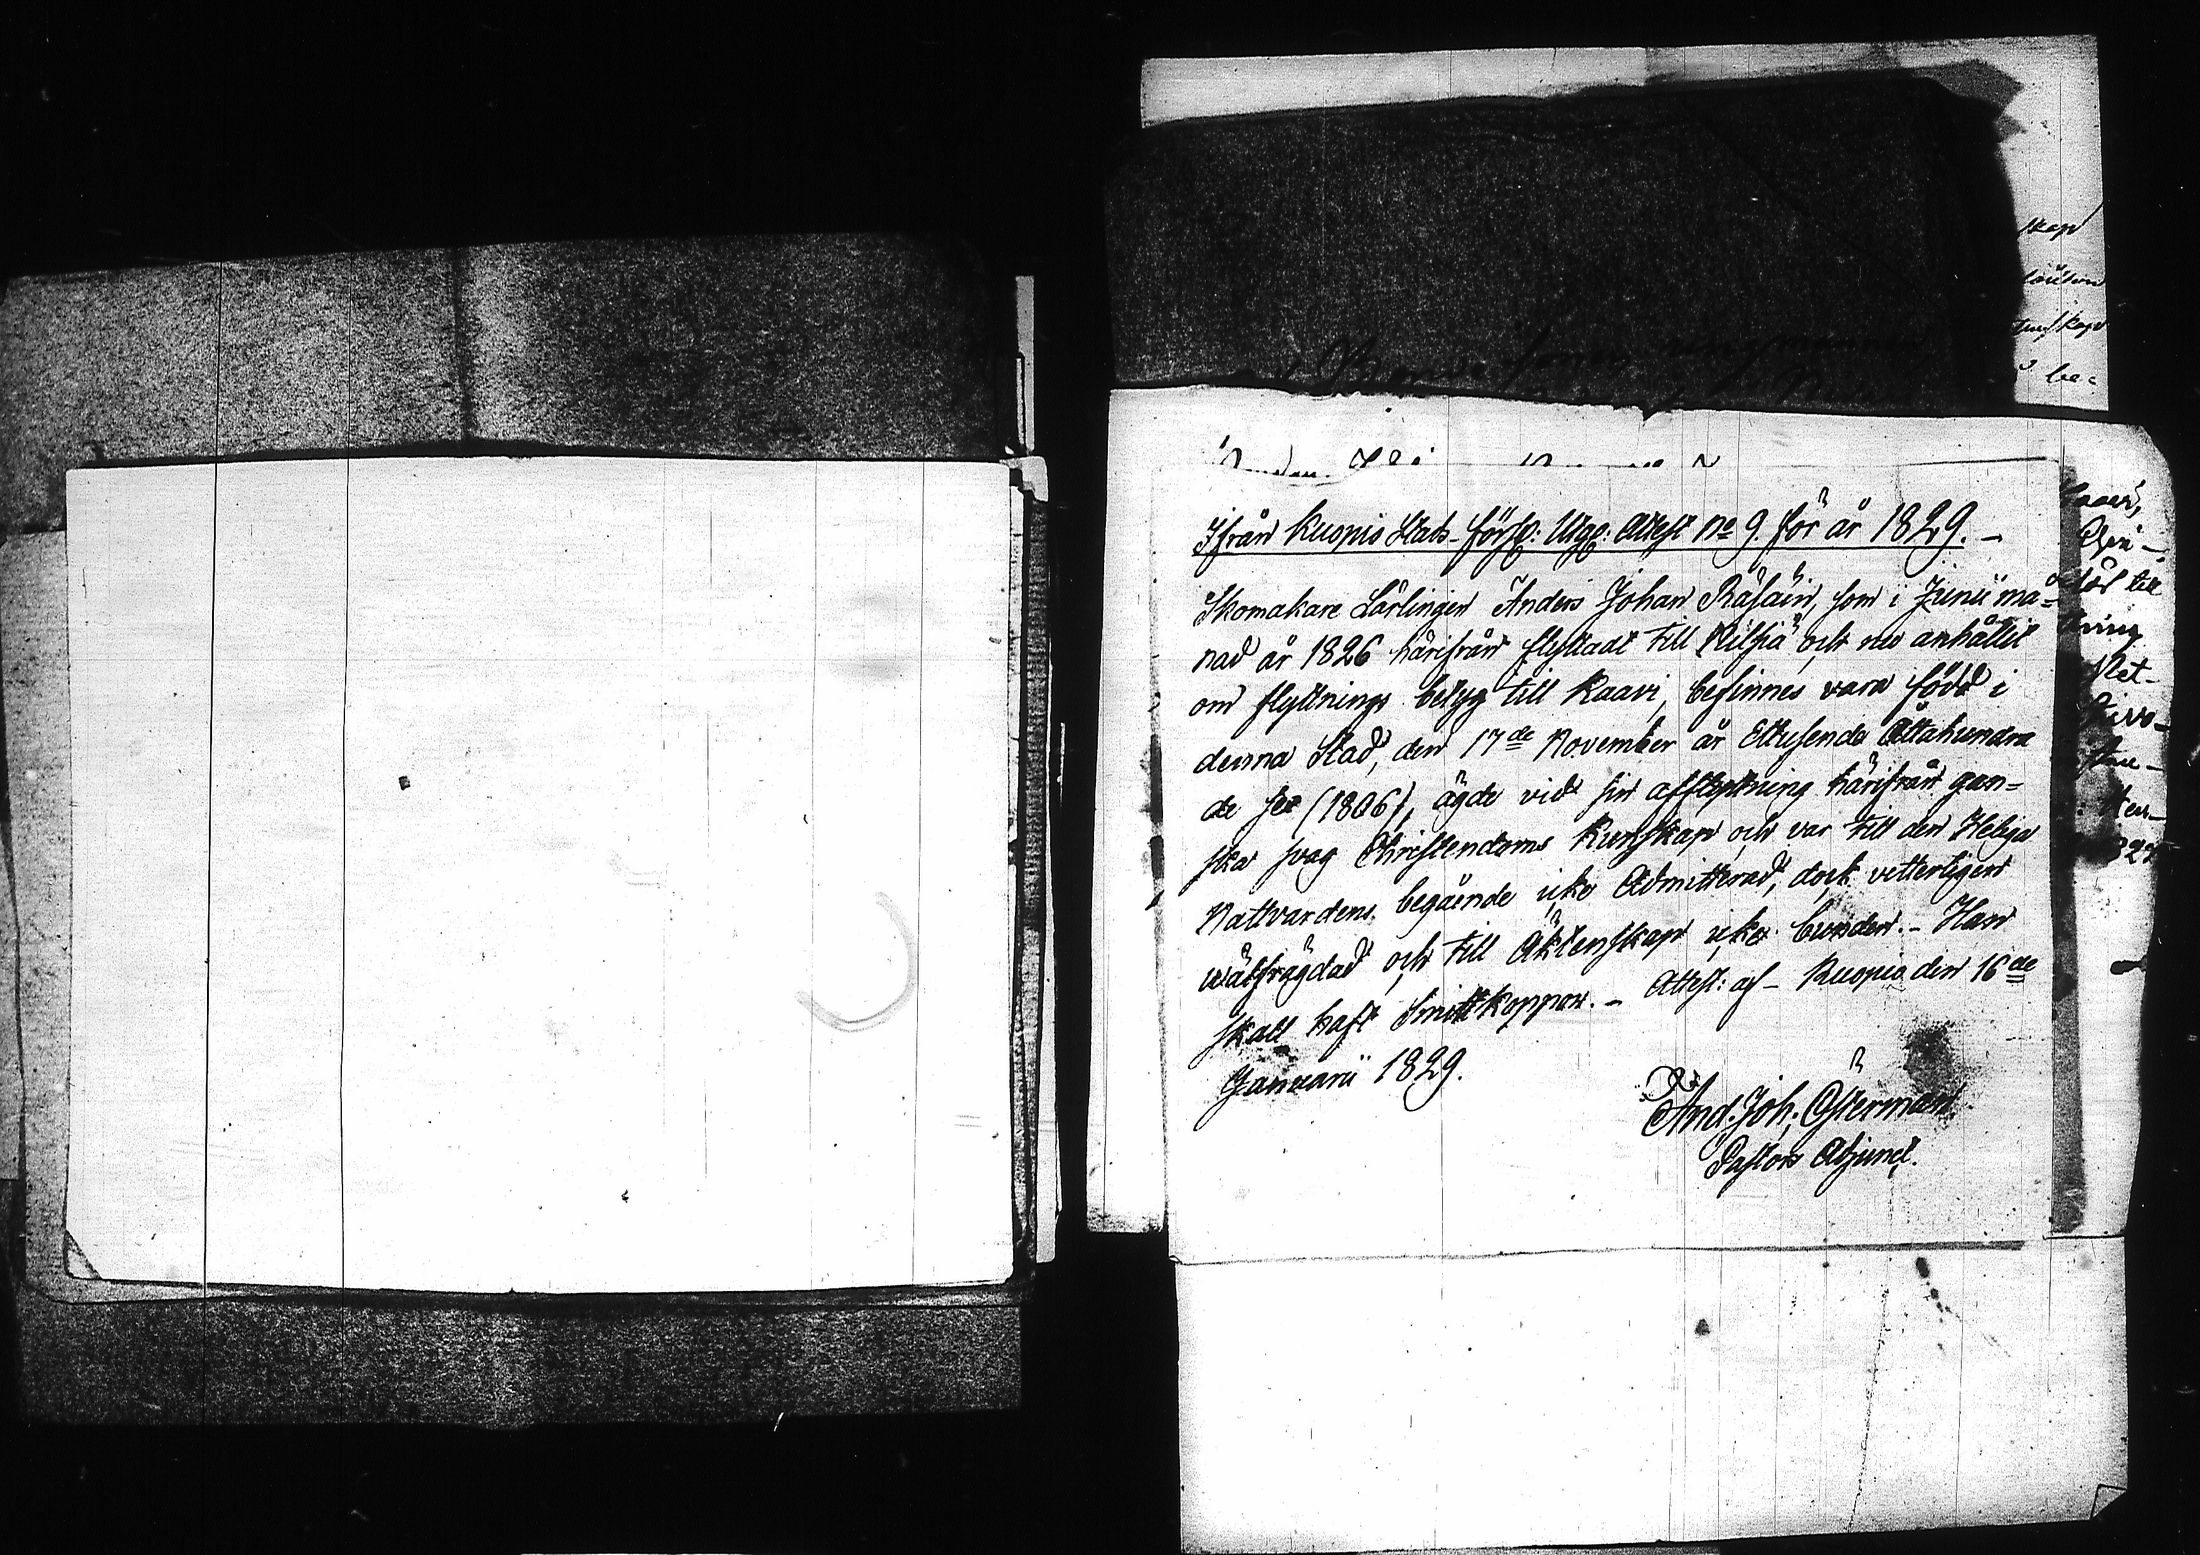 skap
be-
Ifrån Kuopio Stads-Förs: Utge: Attest No 9. för år 1829. -
Skomakare Lärlingen Anders Johan Räsäin, som i Junii må=
nad år 1826 härifrån flyttadt till Nilsiä och nu anhållit
om flyttnings betyg till Kaavi, befinnes vara född i
denna Stad, den 17de November år Ettusende Åttahundra
de sex (1806), ägde vid sin afflyttning härifrån gan=
ska svag Christendoms Kunskap och var till den Heliga
Nattvardens begående icke Admitterad, dock vetterligen
wälfrägdad och till Äktenskap icke bunden. - Han
skall haft Smittkoppor. - Attest: af - Kuopio den 16de
Januarii 1829.
And. Joh. Österman
Pastors Adjunct.
till
ring
Nat-